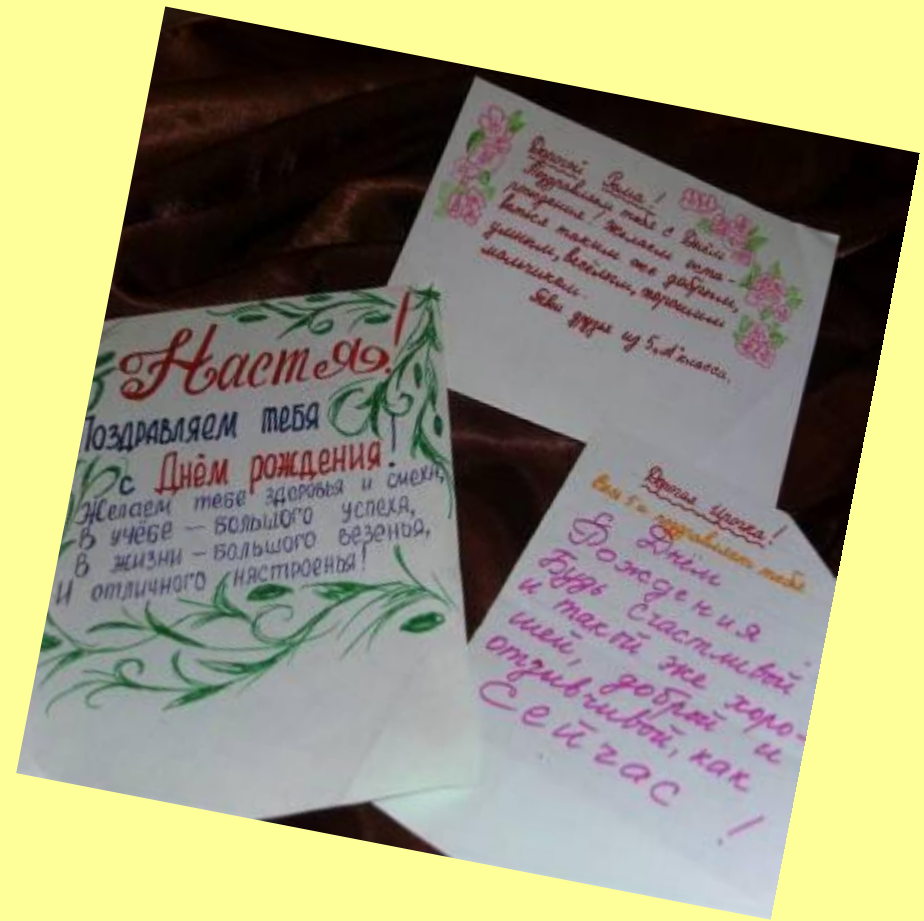 Настя!
Поздравляем тебя
с Днём рождения!
Желаем тебе здоровья и смеха,
В учёбе – большого успеха,
В жизни – большого везенья,
И отличного настроенья!
Дорогой Рома!
Поздравляем тебя с Днём
рождения! Желаем оста-
ваться таким же добрым,
умным, весёлым, хорошим
мальчиком.
Твои друзья из 5 "А" класса.
Дорогая Ирочка!
Весь 5-а поздравляет тебя
С Днём
Рождения
Будь счастливой
и такой же хоро-
шей, доброй и
отзывчивой, как
Сейчас !